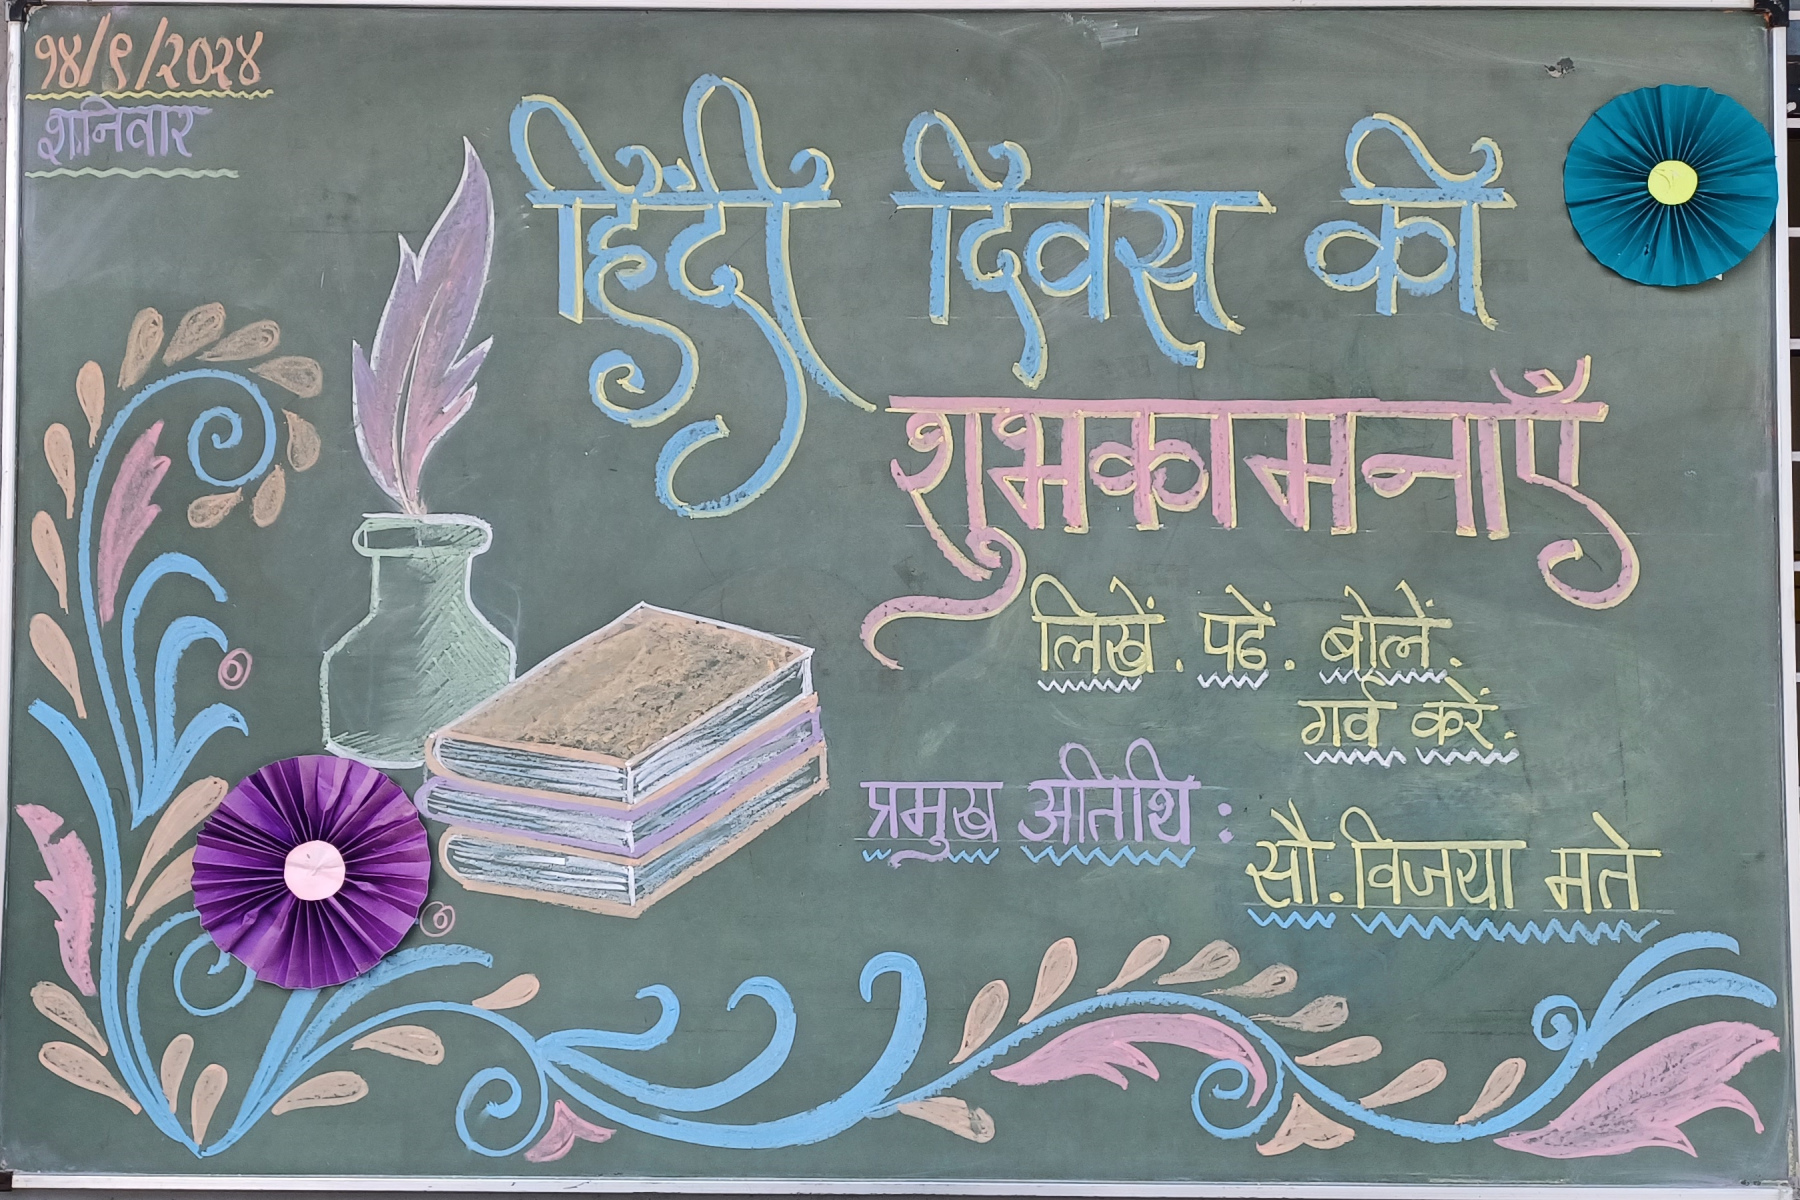 १४/९/२०२४
शनिवार
हिंदी दिवस की
शुभकामनाएँ
लिखें. पढें. बोलें.
गर्व करें.
प्रमुख अतिथि :
सौ. विजया मते